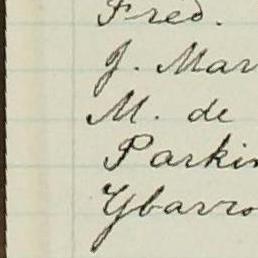 Fred.
J. Mar
M. de
Parkin
Ybarro